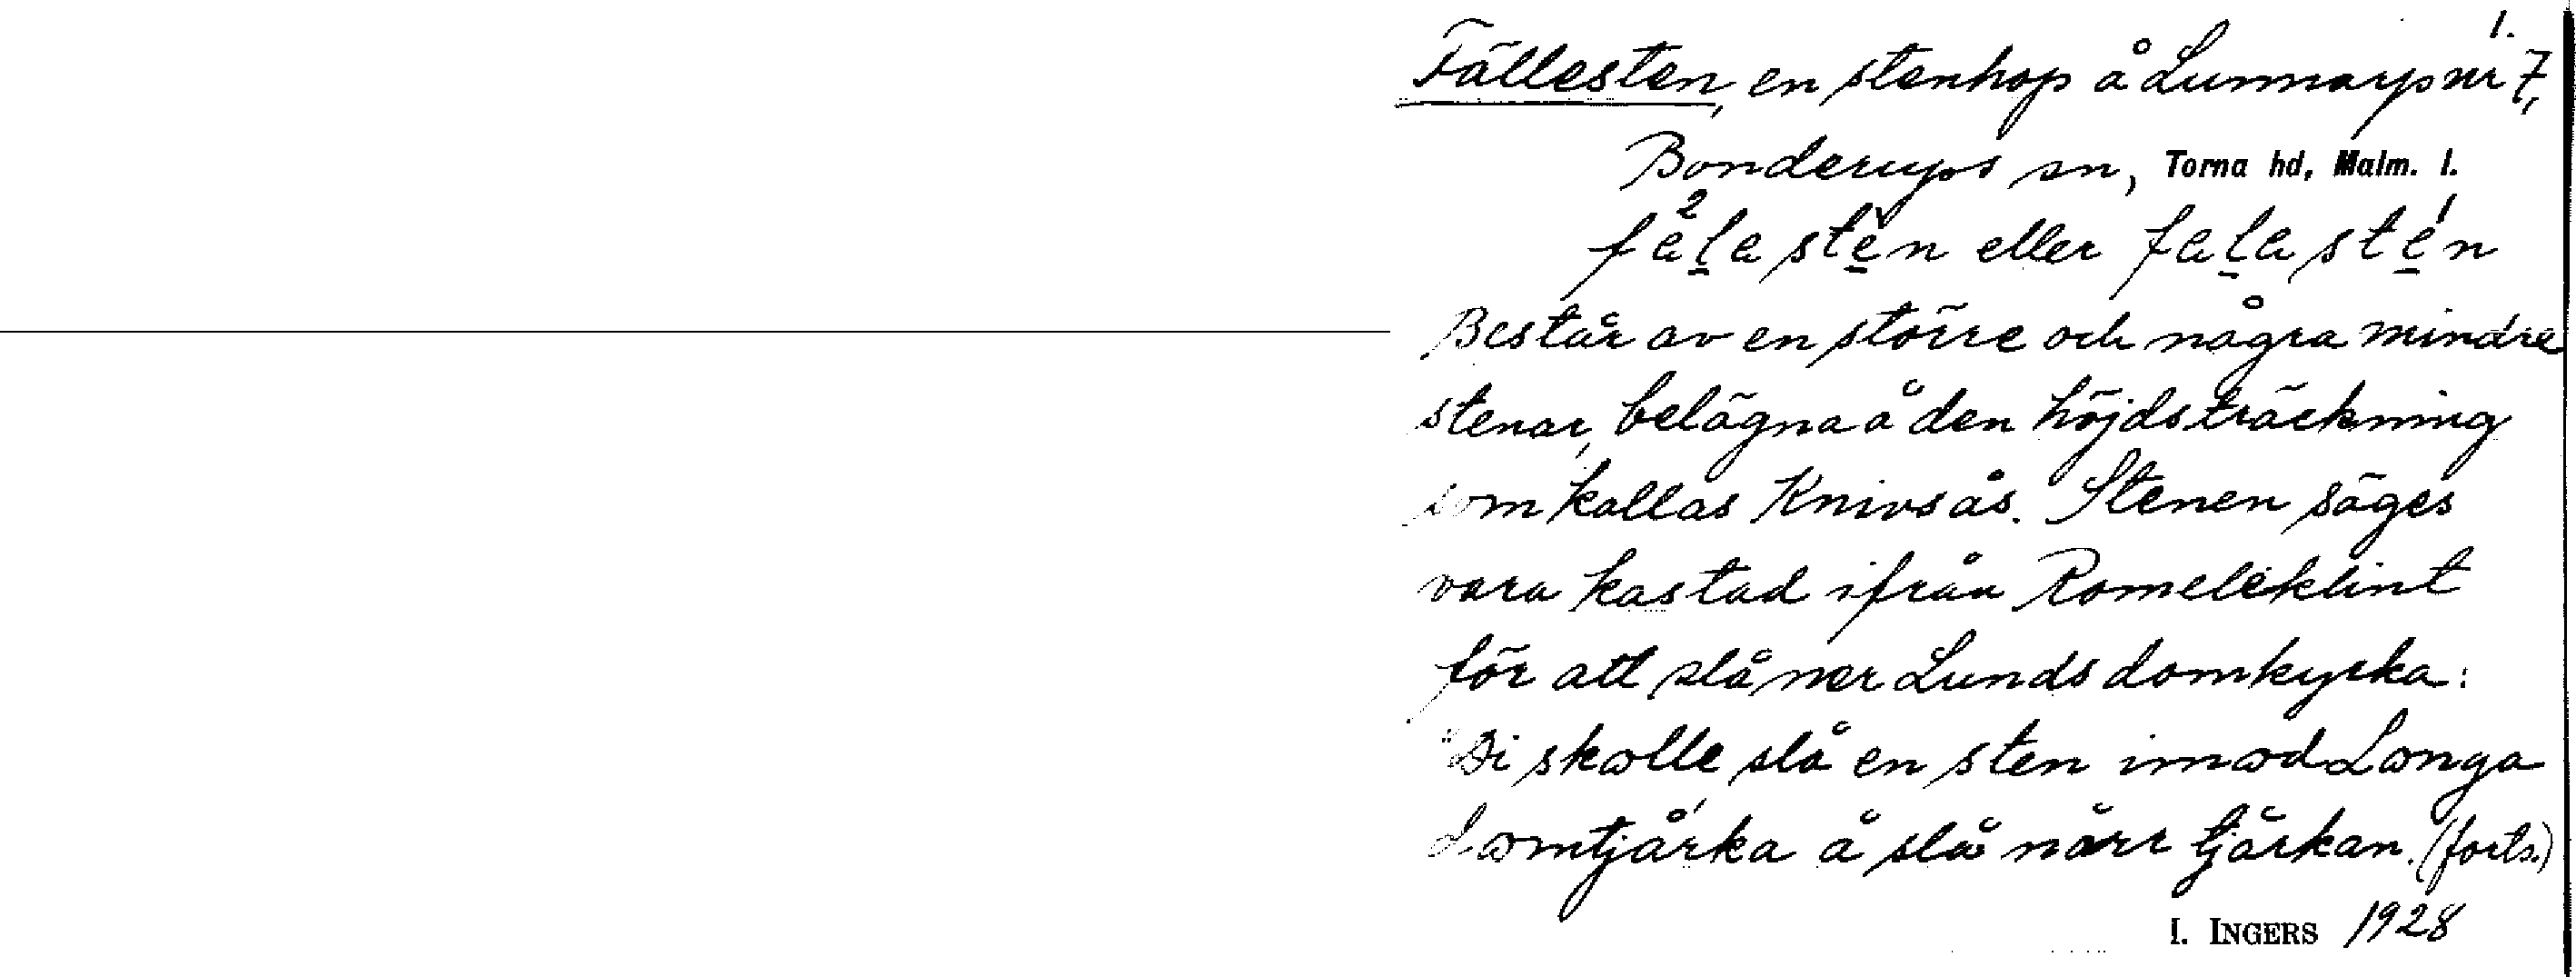 1.
Fällesten, en stenhop å Lunnarp nr 7,
Bonderups sn, Torna hd, Malm. l.
eller
Består av en större och några mindre
stenar, belägna å den höjdsträckning
som kallas Knivsås. Stenen säges
vara kastad ifrån Romeleklint
för att slå ner Lunds domkyrka:
"Di skolle slå en sten imod Longa
domtjårka å slå närr tjärkan. (forts.)
I. INGERS 1928